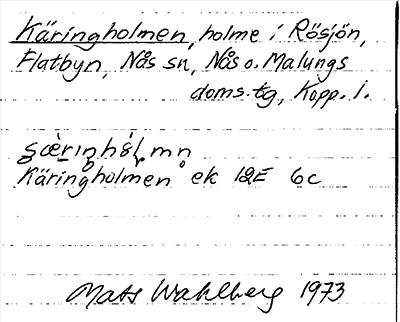 Käringholmen, holme i Rösjön,
Flatbyn, Nås sn, Nås o. Malungs
doms.tg, Kopp. l.
Käringholmen ek 12E 6c
Mats Wahlberg 1973